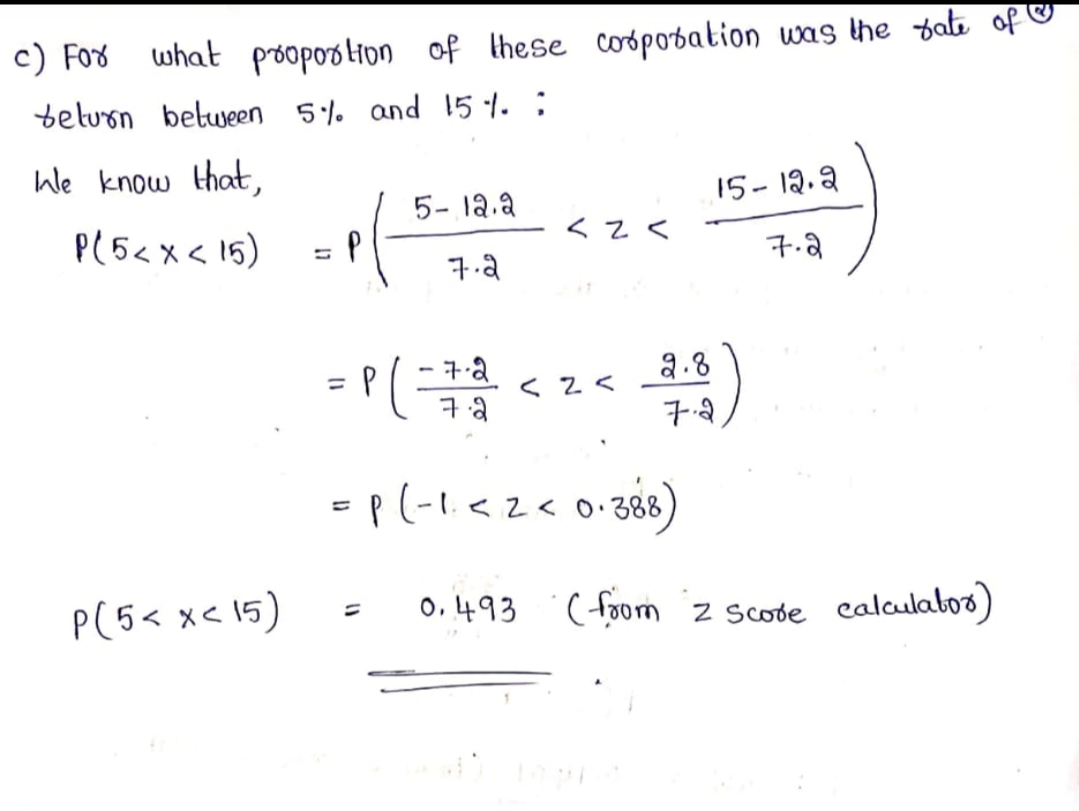 c) For what proportion of these corporation was the rate of (2)
return between 5% and 15%. :
We know that,
P(5 < x < 15) = P( (5 - 12.2)/7.2 < z < (15 - 12.2)/7.2 )
= P( -7.2/7.2 < z < 2.8/7.2 )
= P(-1 < z < 0.388)
P(5 < x < 15) = 0.493 (from z score calculator)